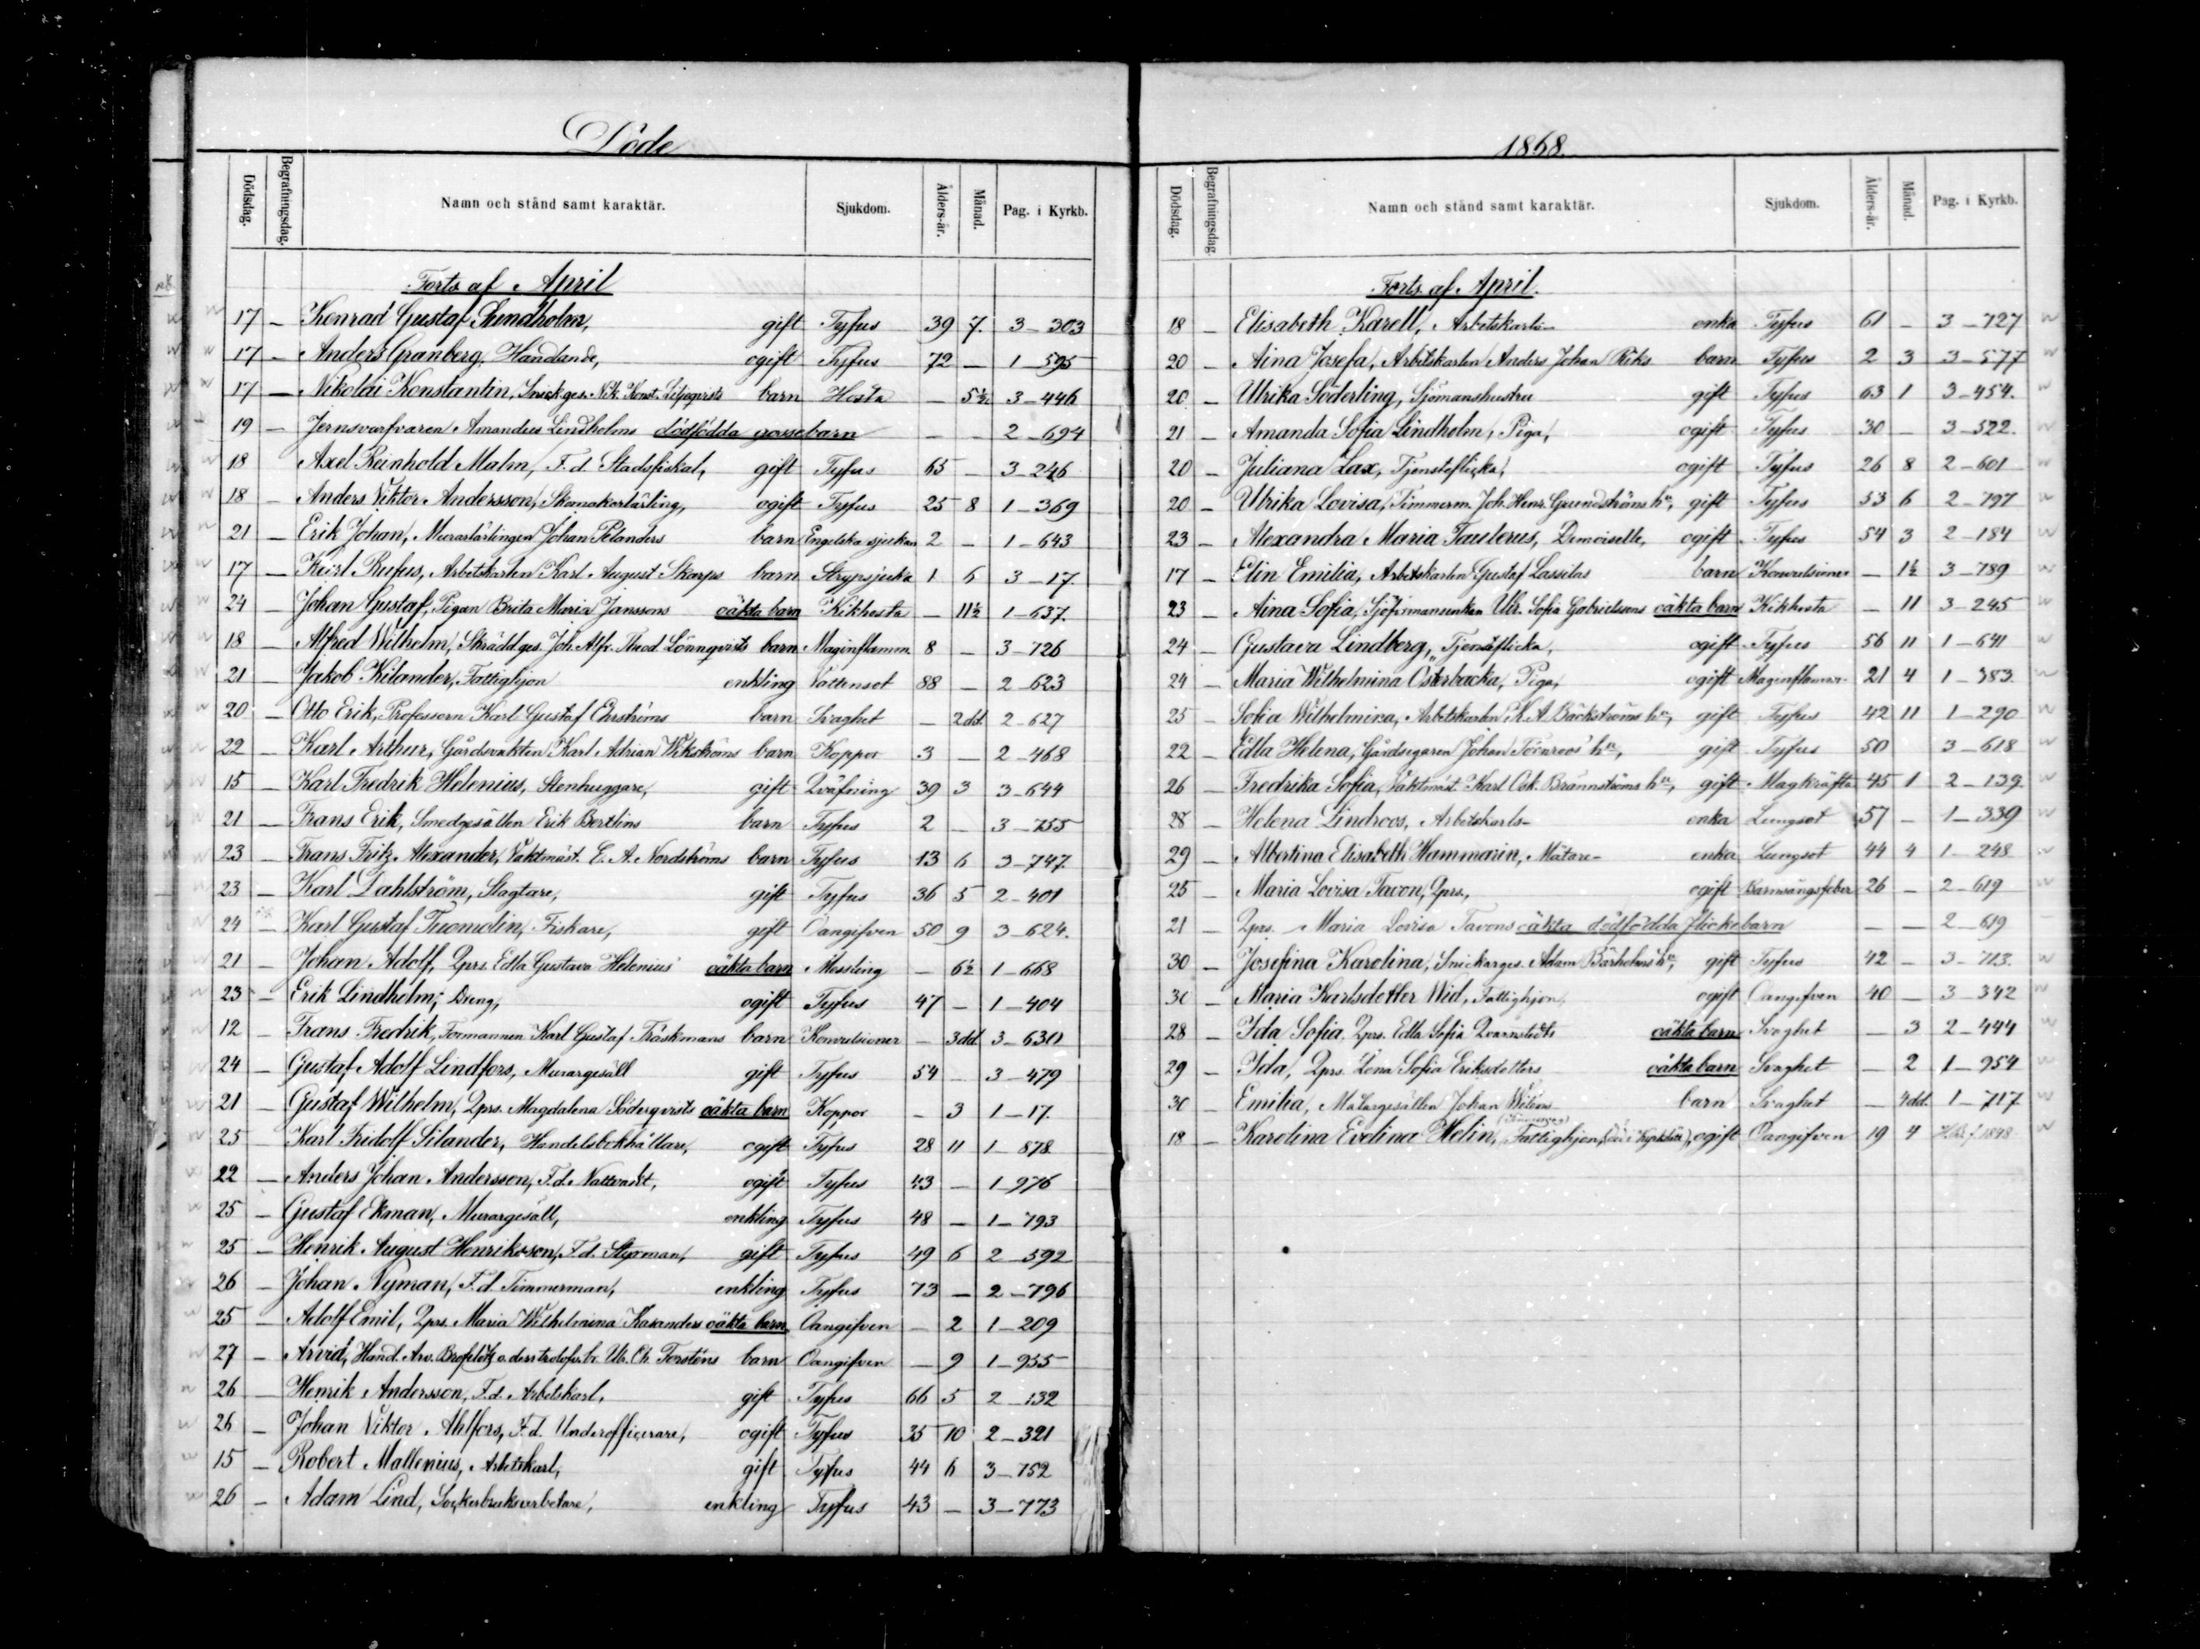 Döde
Dödsdag. Begrafningsdag. Namn och stånd samt karaktär. Sjukdom. Ålders-år. Månad. Pag. i Kyrkb.
Forts af April
17 — Konrad Gustaf Lindholm, gift Tyfus 39 7. 3 — 303
17 — Anders Granberg, Handlande, ogift Tyfus 72 — 1 — 595
17 — Nikolai Konstantin, Snickges. Nik. Konst. Liljeqvists barn Hosta — 5½ 3 — 446
19 — Jernsvarfvaren Amandus Lindholms dödfödda gossebarn — — 2 — 694
18 Axel Reinhold Malm, F. d. Stadsfiskal, gift Tyfus 65 — 3 — 246
18 — Anders Viktor Andersson, Skomakarlärling, ogift Tyfus 25 8 1 — 369
21 — Erik Johan, Murarlärlingen Johan Pelanders barn Engelska sjukan 2 — 1 — 643
17 — Karl Rufus, Arbetskarlen Karl August Skarps barn Strypsjuka 1 6 3 — 17.
24 — Johan Gustaf, Pigan Brita Maria Janssons oäkta barn Kikhosta — 11½ 1 — 637.
18 — Alfred Wilhelm, Skräddges. Joh. Alfr. Theod. Lönnqvists barn Maginflamm. 8 — 3 — 726
21 — Jakob Kilander, Fattighjon enkling Vattensot 88 — 2 — 623
20 — Otto Erik, Professorn Karl Gustaf Ehrströms barn Svaghet — 2dd. 2 — 627
22 — Karl Arthur, Gårdsvakten Karl Adrian Wikströms barn Koppor 3 — 2 — 468
15 — Karl Fredrik Helenius, Stenhuggare, gift Qväfning 39 3 3 — 644
21 — Frans Erik, Smedgesällen Erik Bertlins barn Tyfus 2 — 3 — 755
23 — Frans Fritz Alexander, Vaktmäst. E. A. Nordströms barn Tyfus 13 6 3 — 747.
23 — Karl Dahlström, Slagtare, gift Tyfus 36 5 2 — 401
24 — Karl Gustaf Tuomolin, Fiskare, gift Oangifven 50 9 3 — 624.
21 — Johan Adolf, Qprs. Edla Gustava Helenius' oäkta barn Messling — 6½ 1 — 668
23 — Erik Lindholm, Dreng, ogift Tyfus 47 — 1 — 404
12 — Frans Fredrik, Formannen Karl Gustaf Träskmans barn Konvulsioner — 3dd. 3 — 630
24 — Gustaf Adolf Lindfors, Murargesäll gift Tyfus 54 — 3 — 479
21 — Gustaf Wilhelm, Qprs. Magdalena Söderqvists oäkta barn Koppor — 3 1 — 17.
25 — Karl Fridolf Silander, Handelsbokhållare, ogift Tyfus 28 11 1 — 878
22 — Anders Johan Andersson, F. d. Nattvakt, ogift Tyfus 43 — 1 — 976
25 — Gustaf Ekman, Murargesäll, enkling Tyfus 48 — 1 — 793
25 — Henrik August Henriksson, F. d. Styrman, gift Tyfus 49 6 2 — 592
26 — Johan Nyman, F. d. Timmerman, enkling Tyfus 73 — 2 — 796
25 — Adolf Emil, Qprs. Maria Wilhelmina Kasanders oäkta barn Oangifven — 2 1 — 209
27 — Arvid, Hand. Arv. o. dess trolofv. Ul. Ch. Forsténs barn Oangifven — 9 1 — 955
26 — Henrik Andersson, F. d. Arbetskarl, gift Tyfus 66 5 2 — 132
26 — Johan Viktor Ahlfors, F. d. Underofficerare, ogift Tyfus 35 10 2 — 321
15 — Robert Mallenius, Arbetskarl, gift Tyfus 44 6 3 — 752
26 — Adam Lind, Sockerbruksarbetare, enkling Tyfus 43 — 3 — 773
1868.
Dödsdag. Begrafningsdag Namn och stånd samt karaktär. Sjukdom. Ålders-år. Månad. Pag. i Kyrkb.
Forts. af April.
18 — Elisabeth Karell, Arbetskarls- enka Tyfus 61 — 3 — 727
20 — Aina Josefa, Arbetskarlen Anders Johan Riks barn Tyfus 2 3 3 — 577
20 — Ulrika Söderling, Sjömanshustru gift Tyfus 63 1 3 — 454.
21 — Amanda Sofia Lindholm, Piga, ogift Tyfus 30 — 3 — 522.
20 — Juliana Lax, Tjensteflicka, ogift Tyfus 26 8 2 — 601
20 — Ulrika Lovisa, Timmerm. Joh. Henr. Grundströms hu, gift Tyfus 53 6 2 — 797
23 — Alexandra Maria Taulerus, Demoiselle, ogift Tyfus 54 3 2 — 184
17 — Elin Emilia, Arbetskarlen Gustaf Lassilas barn Konvulsioner — 1½ 3 — 789
23 — Aina Sofia, Sjöförmansenkan Ulr. Sofia Gabrielssons oäkta barn Kikhosta — 11 3 — 245
24 — Gustava Lindberg, Tjensteflicka, ogift Tyfus 56 11 1 — 641
24 — Maria Wilhelmina Österbacka, Piga, ogift Maginflamm. 21 4 1 — 383.
25 — Sofia Wilhelmina, Arbetskarlen K. A. Bäckströms hu, gift Tyfus 42 11 1 — 290
22 — Edla Helena, Gårdsegaren Johan Törnroos' hu, gift Tyfus 50 3 — 618
26 — Fredrika Sofia, Vaktmäst. Karl Osk. Brännströms hu, gift Magkräfta 45 1 2 — 139.
28 — Helena Lindroos, Arbetskarls- enka Lungsot 57 — 1 — 339
29 — Albertina Elisabeth Hammarin, Mätare- enka Lungsot 44 4 1 — 248
25 — Maria Lovisa Tavon, Qprs., ogift Barnsängsfeber 26 — 2 — 619
21 — Qprs. Maria Lovisa Tavons oäkta dödfödda flickebarn — — 2 — 619
30 — Josefina Karolina, Snickarges. Adam Bärholms hu, gift Tyfus 42 — 3 — 713.
30 — Maria Karlsdotter Wid, Fattighjon, ogift Oangifven 40 — 3 — 342
28 — Ida Sofia, Qprs. Edla Sofia Qvarnstedts oäkta barn Svaghet — 3 2 — 444
29 — Ida, Qprs. Lena Sofia Eriksdotters oäkta barn Svaghet — 2 1 — 954
30 — Emilia, Målargesällen Johan Wiléns barn Svaghet — 4dd. 1 — 717
18 — Karolina Evelina Helin, Fattighjon, (död i Kyrkslätt), ogift Oangifven 19 4 1848